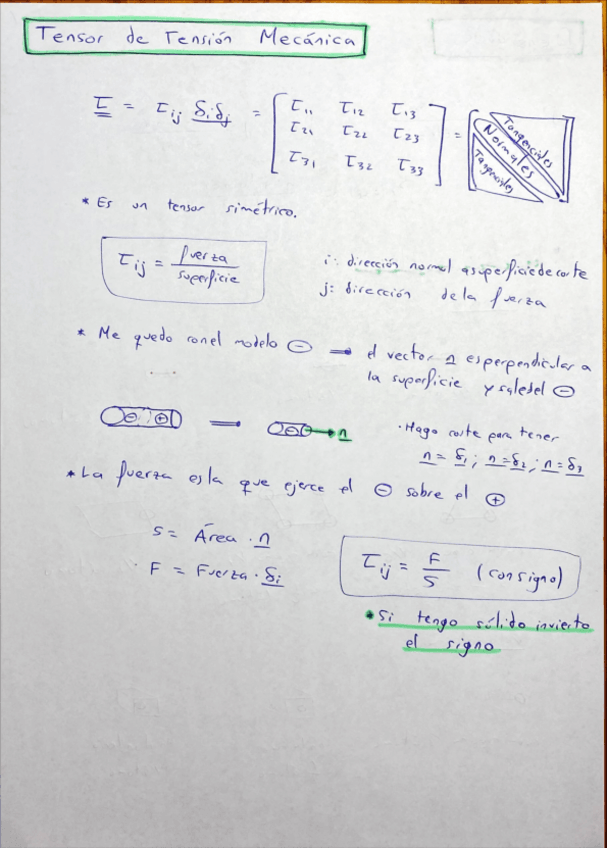 Tensor de Tensión Mecánica
τ = τij δiδj = [ τ11 τ12 τ13
τ21 τ22 τ23
τ31 τ32 τ33 ] = [ Tangenciales
Normales
Tangenciales ]
* Es un tensor simétrico.
τij = fuerza / superficie
i: dirección normal a superficie de corte
j: dirección de la fuerza
* Me quedo con el modelo ⊖ → el vector n es perpendicular a
la superficie y sale del ⊖
⊖ ⊕ → ⊖ → n
· Hago corte para tener
n = δ1 ; n = δ2 ; n = δ3
* La fuerza es la que ejerce el ⊖ sobre el ⊕
S = Área · n
F = Fuerza · δi
τij = F / S (con signo)
* Si tengo sólido invierto
el signo